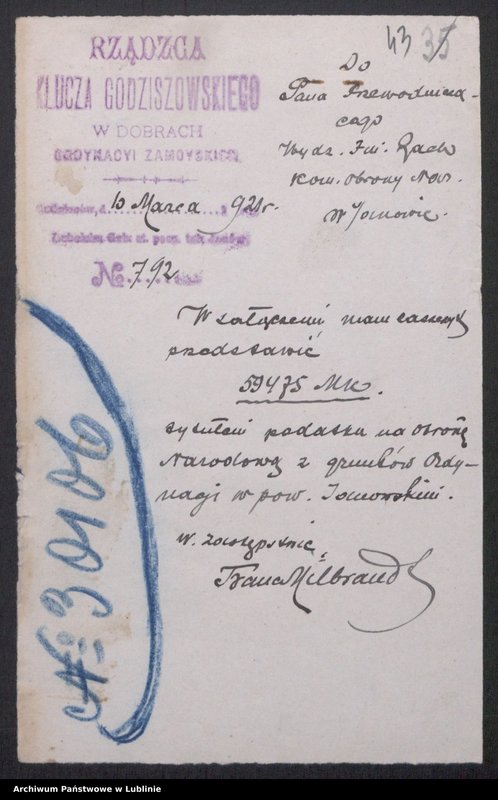 43 35
RZĄDZCA
KLUCZA GODZISZOWSKIEGO
W DOBRACH
ORDYNACYI ZAMOYSKIEJ
10 Marca 921 r.
№ 792
Do
Pana Przewodniczą-
cego
Wydz. Fin. Rach
Kom. Obrony Nar.
w Janowie.
W załączeniu mam zaszczyt
przedstawić
59475 Mk.
tytułem podatku na Obronę
Narodową z gruntów Ordy-
nacji w pow. Janowskim.
w. zastępstwie
Franc Milbrandt
№: 30106
Archiwum Państwowe w Lublinie